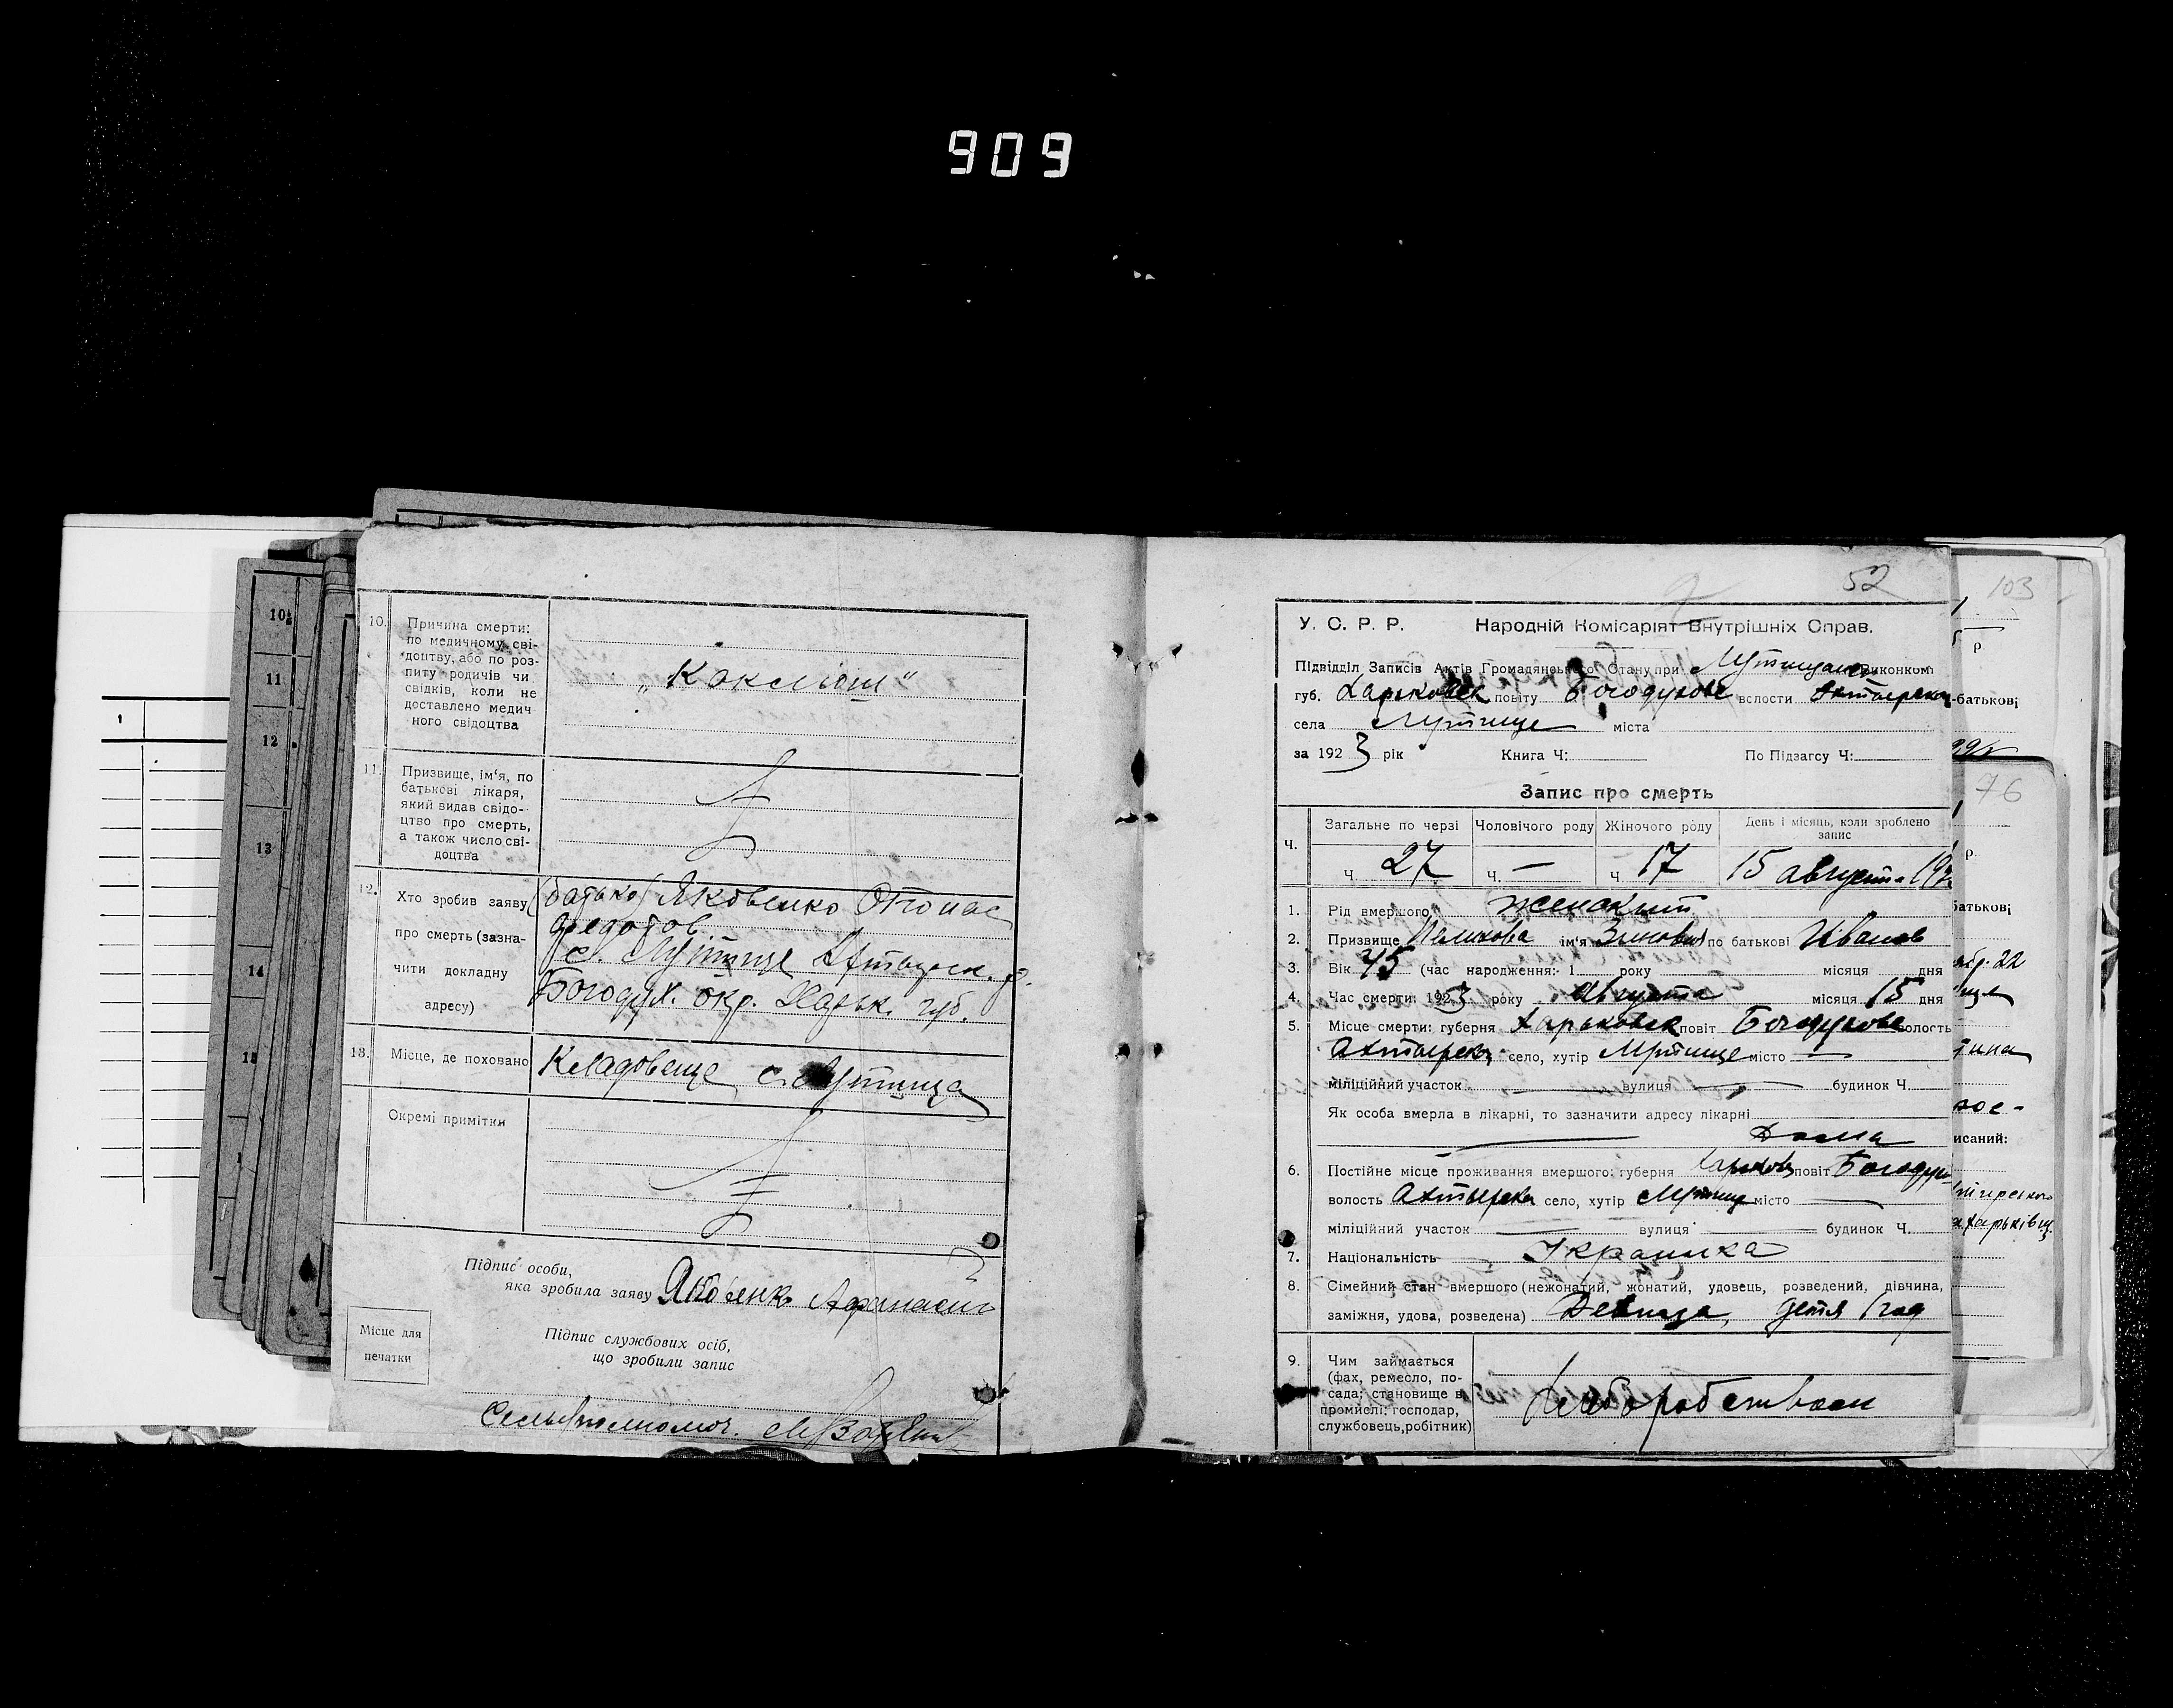 909
10.
Причина смерти:
по медичному сві-
доцтву, або по роз-
питу родичів чи
свідків, коли не
доставлено медич
ного свідоцтва
„Коклюш"
11.
Призвище, ім'я, по
батькові лікаря,
який видав свідо-
цтво про смерть,
а також число сві-
доцтва
12.
Хто зробив заяву
про смерть (зазна-
чити докладну
адресу)
(батько) Яковенко Опонас
Федотов
с. Лутище Ахтырск. р.
Богодух. окр. Харьк. губ.
13.
Місце, де поховано
Кладовеще с. Лутища
Окремі примітки
Підпис особи,
яка зробила заяву Яковенко Афанасий
Місце для
печатки
Підпис службових осіб,
що зробили запис
52
У. С. Р. Р. Народній Комісаріят Внутрішніх Справ.
Підвідділ Записів Актів Громадянського Стану при Виконком
губ. Харьковск повіту Богодухове волости Ахтырска
села Лутище міста
за 1923 рік Книга Ч: По Підзагсу Ч:
Запис про смерть
Ч.
Загальне по черзі Чоловічого роду Жіночого роду День і місяць, коли зроблено
запис
Ч. 27 Ч. — Ч. 17 15 август. 192
1. Рід вмершого Женский
2. Призвище ім'я по батькові Иванов
3. Вік 45 (час народження: 1 року місяця дня
4. Час смерти: 1923 року Августа місяця 15 дня
5. Місце смерти: губерня Харьковск повіт Богодухове волость
Ахтырска село, хутір Лутище місто —
міліційний участок — вулиця — будинок Ч.
Як особа вмерла в лікарні, то зазначити адресу лікарні
Дома
6. Постійне місце проживання вмершого: губерня Харьков повіт Богодух
волость Ахтырска село, хутір Лутище місто —
міліційний участок — вулиця — будинок Ч.
7. Національність Украинка
8. Сімейний стан вмершого (нежонатий, жонатий, удовець, розведений, дівчина,
заміжня, удова, розведена) Девица,
9.
Чим займається
(фах, ремесло, по-
сада; становище в
промислі; господар,
службовець, робітник)
Хлеборобством
103
р.
-батькові
76
р.
батькові
исаний:
10
11
12
13
14
15
1